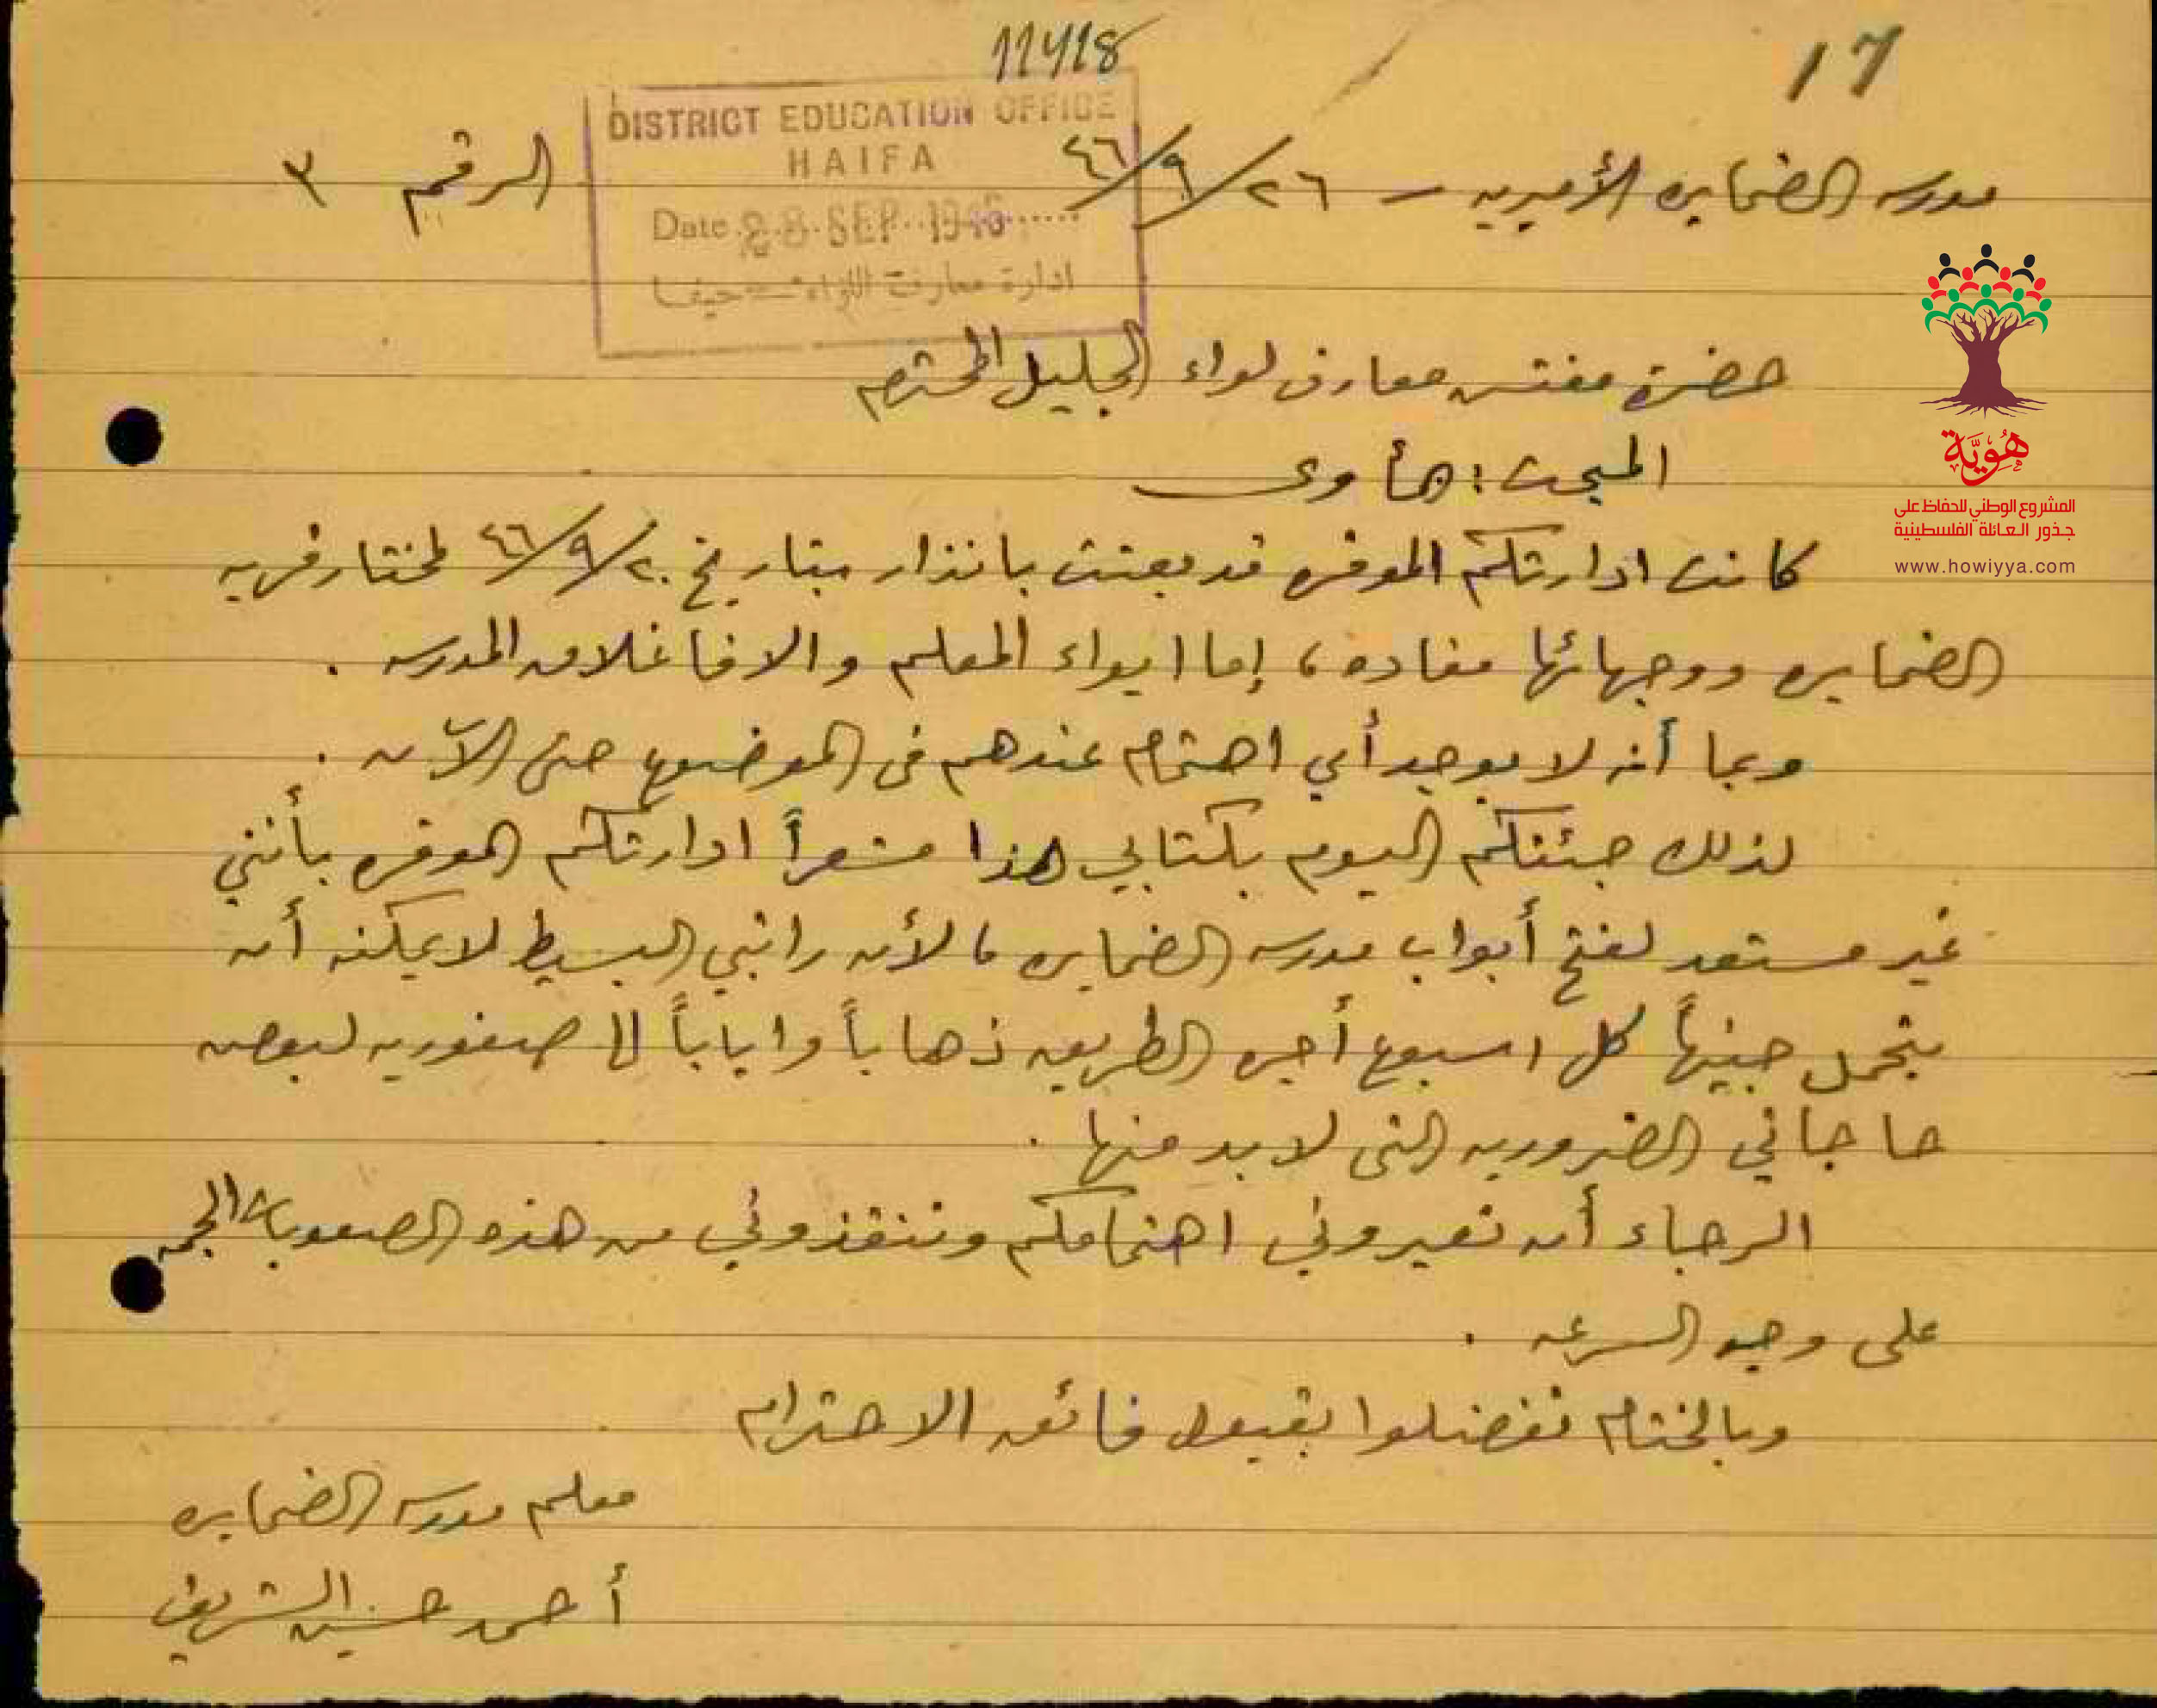 17
11418
DISTRICT EDUCATION OFFICE
HAIFA
Date 28 SEP 1946
ادارة معارف اللواء حيفا
مدرسه الضمايره الأميريه - ٢٦/٩/٤٦ الرقم ٣
حضرة مفتش معارف لواء الجليل المحترم
المبحث: مأوى
كانت ادارتكم الموقره قد بعثت بانذار بتاريخ ٢٠/٩/٤٦ لمختار قريه
الضمايره ووجهائها مفاده، إما ايواء المعلم والا فاغلاق المدرسه .
وبما أنه لا يوجد أي اهتمام عندهم في الموضوع حتى الآن .
لذلك جئتكم اليوم بكتابي هذا مشعراً ادارتكم الموقره بأنني
غير مستعد لفتح أبواب مدرسه الضمايره، لأن راتبي البسيط لا يمكنه أن
يتحمل جنيهاً كل اسبوع أجره الطريق ذهاباً واياباً الى صفوريه لبعض
حاجاتي الضروريه التي لا بد منها .
الرجاء أن تعيروني اهتمامكم وتنقذوني من هذه الصعوبات الجمه
على وجه السرعه .
وبالختام تفضلوا بقبول فائق الاحترام
معلم مدرسه الضمايره
أحمد حسين الشريف
هُوِيَّة
المشروع الوطني للحفاظ على
جذور العائلة الفلسطينية
www.howiyya.com